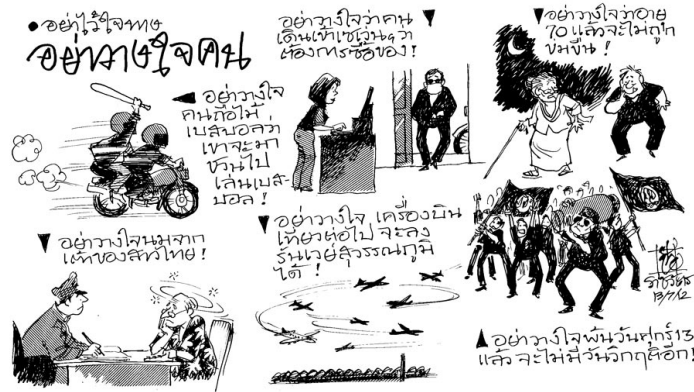 อย่าไว้ใจทาง
อย่าวางใจคน
อย่าวางใจ
คนถือไม้
เบสบอลว่า
เขาจะมา
ชวนไป
เล่นเบส-
บอล!
อย่าวางใจว่าคน
เดินเข้าเซเว่นฯว่า
ต้องการซื้อของ!
อย่าวางใจว่าอายุ
70 แล้วจะไม่ถูก
ข่มขืน!
อย่าวางใจนมจาก
เต้าของสัตว์ไทย!
อย่าวางใจ เครื่องบิน
เที่ยวต่อไป จะลง
รันเวย์สุวรรณภูมิ
ได้!
13/7/12
อย่าวางใจพ้นวันศุกร์ 13
แล้วจะไม่มีวันวิกฤตอีก!